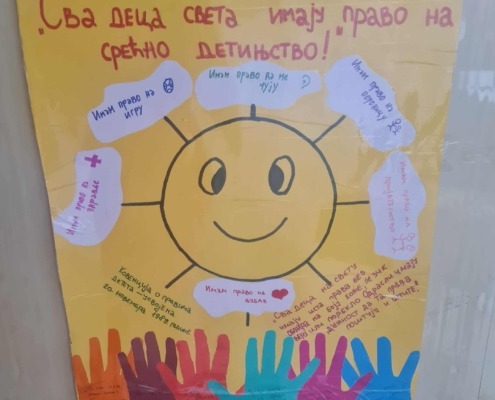 „Сва деца света имају право на
срећно детињство!"
Имам право на
игру
Имам право да ме
чују
Имам право на
породицу
Имам право на
здравље
Имам право на
пријатељство
Имам право на
љубав
Конвенција о правима
детета усвојена
20. новембра 1989. године.
„Сва деца на свету
имају иста права без
обзира на боју коже, језик
веру или порекло. Одрасли имају
дужност да та права
поштују и штите."